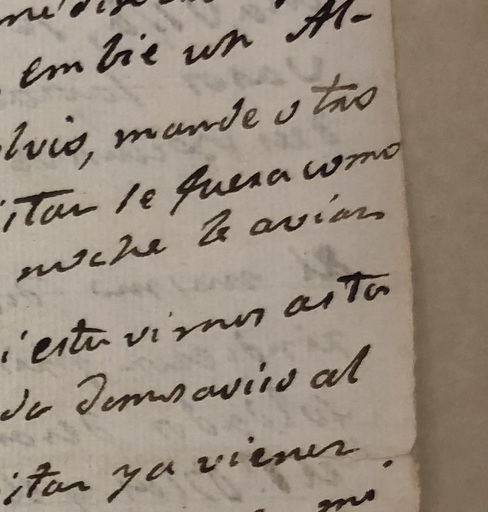 embie un Al-
lvis, mande otras
itar le fuera como
noche le avian
i estuvimos asta
da damos aviso al
itar ya vienen
mi